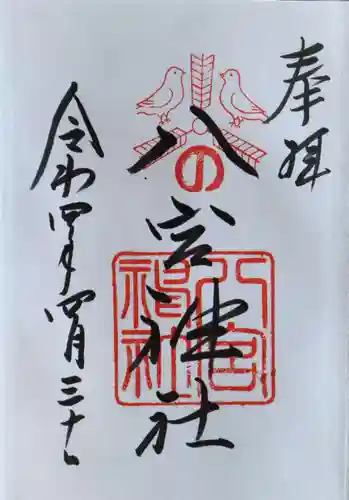 奉拝
八の宮神社
八宮
神社
令和四年四月三十日